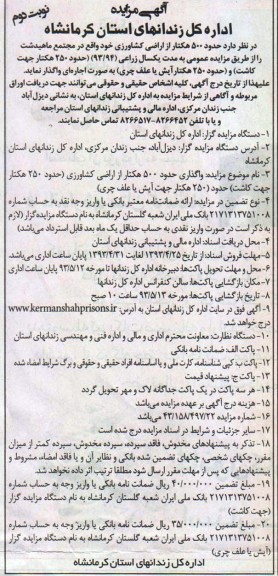 آگهی مزایده
نوبت دوم
اداره کل زندانهای استان کرمانشاه
در نظر دارد حدود ۵۰۰ هکتار از اراضی کشاورزی خود واقع در مجتمع ماهیدشت
را از طریق مزایده عمومی به مدت یکسال زراعی (۹۳/۹۴) (حدود ۲۵۰ هکتار جهت
کاشت) و (حدود ۲۵۰ هکتار آیش یا علف چری) به صورت اجاره‌ای واگذار نماید.
علیهذا از تاریخ درج آگهی، کلیه اشخاص حقیقی و حقوقی می‌توانند جهت دریافت اوراق
مربوطه و آگاهی از شرایط مزایده به اداره کل زندانهای استان، به نشانی دیزل آباد
جنب زندان مرکزی، اداره مالی و پشتیبانی زندانهای استان مراجعه
و یا با تلفن ۸۲۶۶۴۵۲-۸۲۶۶۵۱۷ تماس حاصل نمایند.
۱- دستگاه مزایده گزار: اداره کل زندانهای استان
۲- آدرس دستگاه مزایده گزار: دیزل‌آباد، جنب زندان مرکزی، اداره کل زندانهای استان
کرمانشاه
۳- نام موضوع مزایده: واگذاری حدود ۵۰۰ هکتار از اراضی کشاورزی (حدود ۲۵۰ هکتار
جهت کاشت) (حدود ۲۵۰ هکتار جهت آیش یا علف چری)
۴- نوع تضمین در مزایده: ارائه ضمانت‌نامه معتبر بانکی یا واریز وجه نقد به حساب شماره
۲۱۷۱۳۱۳۷۵۱۰۰۸ بانک ملی ایران شعبه گلستان کرمانشاه به نام دستگاه مزایده گزار (لازم
به ذکر است در صورت واریز نقدی به حساب حداقل یک ماه بعد قابل استرداد می‌باشد)
۴- محل دریافت اسناد: اداره مالی و پشتیبانی زندانهای استان
۵- مهلت فروش اسناد: از تاریخ ۱۳۹۳/۴/۲۵ لغایت ۱۳۹۳/۴/۳۱ پایان ساعت اداری می‌باشد.
۶- محل و مهلت تحویل پاکت‌ها: دبیرخانه اداره کل زندانها تا مورخه ۹۳/۵/۱۲ پایان ساعت اداری
۷- مکان بازگشایی پاکت‌ها: سالن کنفرانس اداره کل زندانها
۸- تاریخ بازگشایی پاکت‌ها: مورخه ۹۳/۵/۱۳ ساعت ۱۰ صبح
۹- آگهی فوق در سایت اداره کل زندانهای استان به آدرس: www.kermanshahprisons.ir
درج خواهد شد.
۱۰- دستگاه نظارت: معاونت محترم اداری و مالی و اداره فنی و مهندسی زندانهای استان
۱۱- پاکت الف: ضمانت نامه بانکی
۱۲- پاکت ب: کپی شناسنامه، کارت ملی و یا اساسنامه افراد حقیقی و حقوقی و برگ شرایط امضاء شده
۱۳- پاکت ج: پیشنهاد قیمت
۱۴- هر سه پاکت در یک پاکت جداگانه لاک و مهر تحویل گردد
۱۵- هزینه درج آگهی بر عهده مزایده می‌باشد
۱۶- شماره مزایده ۴۳/۱۵۸/۴۹۷/۲۲ می‌باشد
۱۷- سایر جزئیات و شرایط در اسناد مزایده درج شده است
۱۸- تذکر به پیشنهادهای مخدوش، فاقد سپرده، سپرده مخدوش، سپرده کمتر از میزان
مقرر، چکهای شخصی، چکهای تضمین شده بانکی و نظایر آن و یا فاقد امضاء، مشروط و
پیشنهادهایی که پس از مهلت مقرر ارسال شود مطلقا ترتیب اثر داده نخواهد شد.
۱۹- مبلغ تضمین ۴۰/۰۰۰/۰۰۰ ریال ضمانت نامه بانکی یا واریز وجه به حساب شماره
۲۱۷۱۳۱۳۷۵۱۰۰۸ بانک ملی ایران شعبه گلستان کرمانشاه به نام دستگاه مزایده گزار
(جهت کاشت)
۲۰- مبلغ تضمین ۳۵/۰۰۰/۰۰۰ ریال ضمانت نامه بانکی یا واریز وجه به حساب شماره
۲۱۷۱۳۱۳۷۵۱۰۰۸ بانک ملی ایران شعبه گلستان کرمانشاه به نام دستگاه مزایده گزار
(آیش یا علف چری)
اداره کل زندانهای استان کرمانشاه